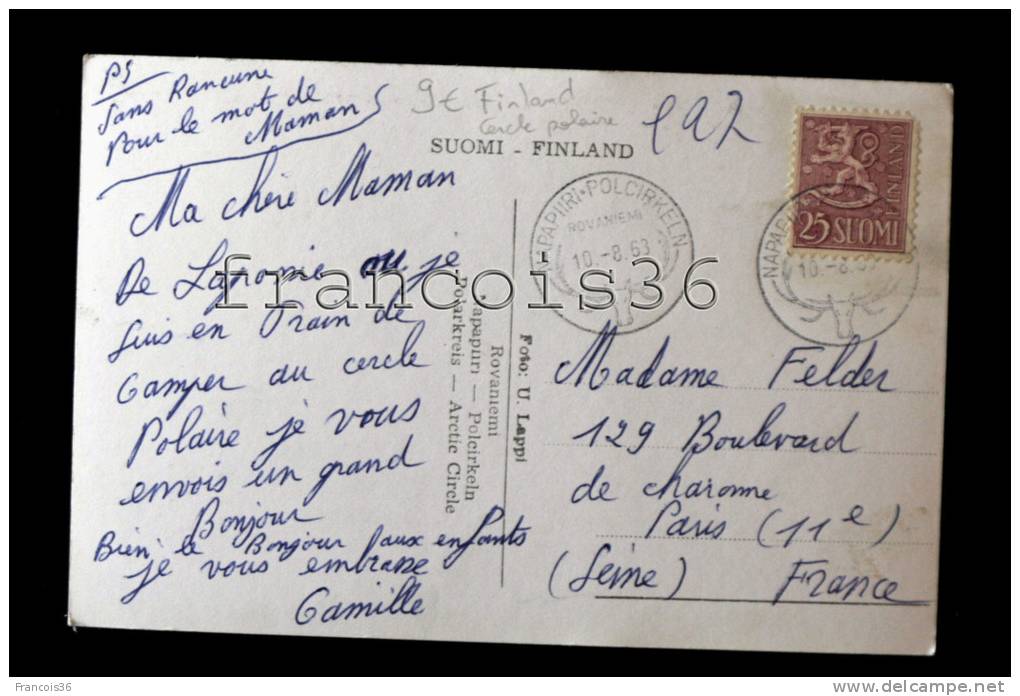 PS
Sans Rancune
Pour le mot de
Maman
Ma chère Maman
De Laponie ou je
suis en Train de
Camper au cercle
Polaire je vous
envois un grand
Bonjour
Bien le Bonjour aux enfants
je vous embrasse
Camille
9€ Finland
Cercle polaire
SUOMI - FINLAND
NAPAPIIRI • POLCIRKELN
ROVANIEMI
10.-8.63
25 SUOMI
FINLAND
NAPAPII
10.-8.63
Rovaniemi
Napapiiri — Polcirkeln
Polarkreis — Arctic Circle
Foto: U. Lappi
Madame Felder
129 Boulevard
de charonne
Paris (11e)
(Seine) France
francois36
Francois36
www.delcampe.net